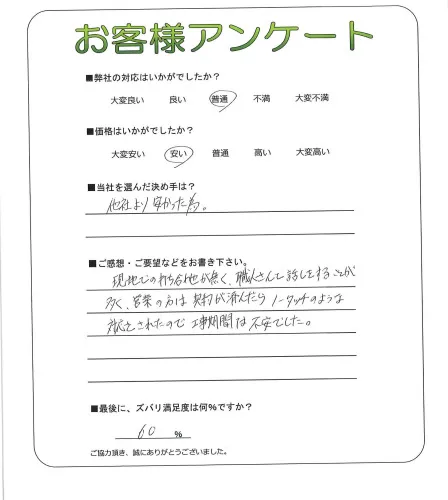 お客様アンケート
■弊社の対応はいかがでしたか？
大変良い 良い 普通 不満 大変不満
■価格はいかがでしたか？
大変安い 安い 普通 高い 大変高い
■当社を選んだ決め手は？
他社より安かった為。
■ご感想・ご要望などをお書き下さい。
現地での打ち合せが無く、職人さんと話しをすることが
多く、営業の方は契約が済んだらノータッチのような
対応をされたので工事期間は不安でした。
■最後に、ズバリ満足度は何%ですか？
60 %
ご協力頂き、誠にありがとうございました。